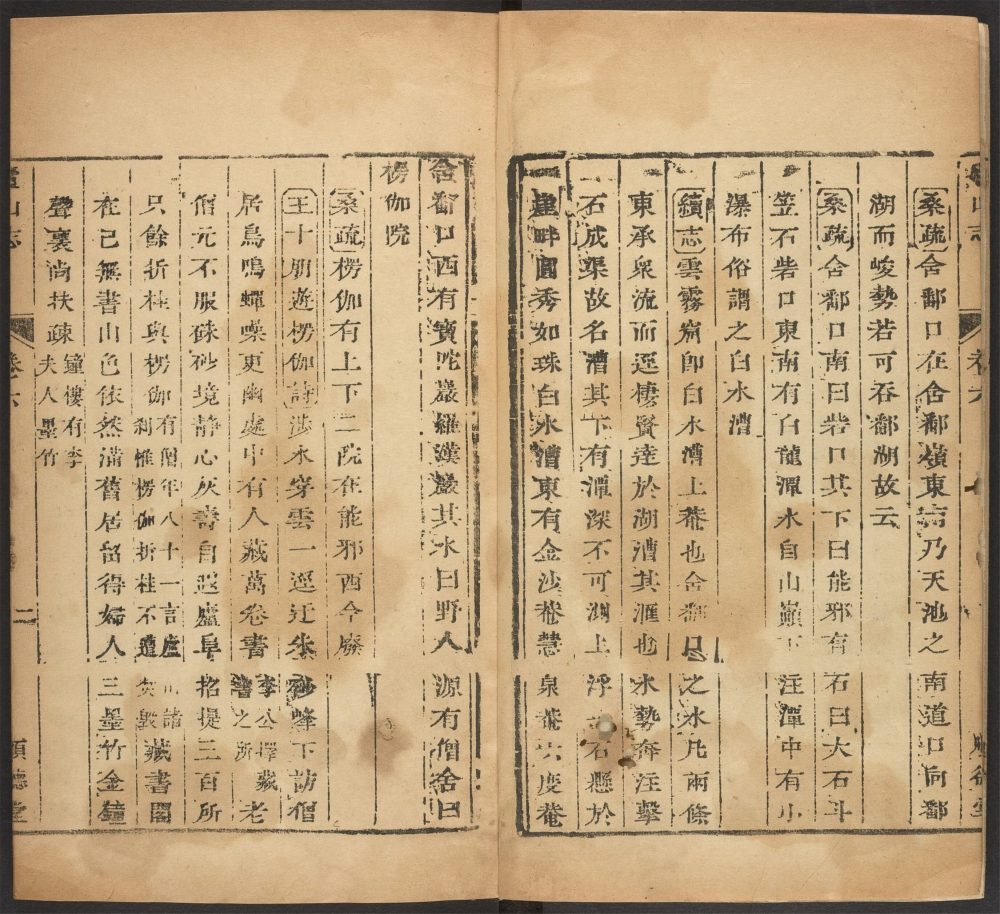 山志 卷六 順德堂
桑疏舍鄱口在舍鄱嶺東南乃天池之南道口向鄱
湖而峻勢若可吞鄱湖故云
桑疏舍鄱口南曰砦口其下曰能邪有石曰大石斗
笠石砦口東南有白龍潭水自山巔下注潭中有小
瀑布俗謂之白水漕
續志雲霧 即白水漕上菴也舍鄱口之水凡兩條
東承衆流而逕棲賢達於湖漕其滙也水勢奔注擊
石成渠故名漕其下有潭深不可測上浮 石懸於
畔圓秀如珠白水漕東有金沙菴慧泉菴六度菴
舍鄱口西有寶陀巖羅漢巖其水曰野人源有僧舍曰
楞伽院
桑疏楞伽有上下二院在能邪西今廢
王十朋遊楞伽詩涉水穿雲一逕迂朱砂峰下訪僧
居鳥鳴蟬噪更幽處中有人藏萬卷書李公擇藏書之所老
僧元不服硃砂境靜心灰壽自遐廬阜招提三百所
只餘折桂與楞伽有僧年八十一言廬山諸刹惟楞伽折桂不遭焚毀藏書閣
在已無書山色依然滿舊居留得婦人三墨竹金鐘
聲裏尚扶疎鐘樓有李夫人墨竹
山志 卷六 二 順德堂